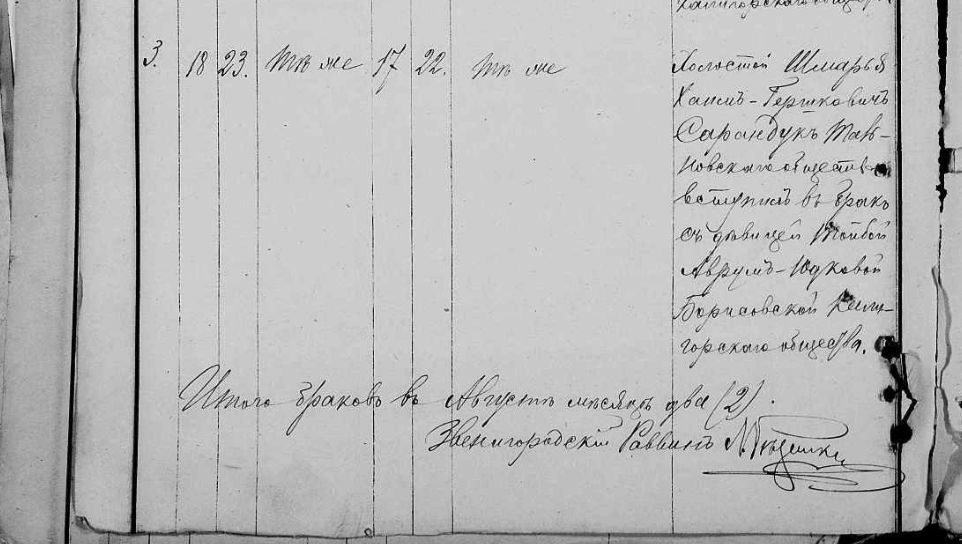 3. 18 23. Тѣ же 17 22. Тѣ же
Холостой Шмарья
Хаимъ-Гершковичъ
Сарандукъ Тав-
ровскаго общества
вступилъ въ бракъ
съ дѣвицей Тойбой
Аврумъ-Юдковой
Борисовской Кали-
горскаго общества.
Итого браковъ въ Августѣ мѣсяцѣ два (2).
Звенигородскій Раввинъ